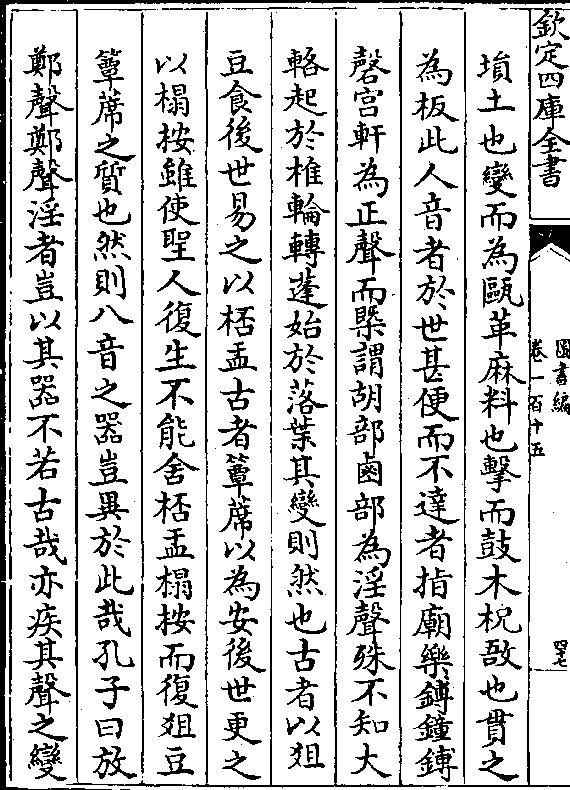 欽定四庫全書
圖書編
卷一百十五
四七
塤土也變而為甌革麻料也擊而鼓木柷敔也貫之
為板此人音者於世甚便而不達者指廟樂鎛鐘鎛
磬宮軒為正聲而槩謂胡部鹵部為淫聲殊不知大
輅起於椎輪轉蓬始於落葉其變則然也古者以俎
豆食後世易之以桮盂古者簟蓆以為安後世更之
以榻按雖使聖人復生不能舍桮盂榻按而復俎豆
簟蓆之質也然則八音之器豈異於此哉孔子曰放
鄭聲鄭聲淫者豈以其器不若古哉亦疾其聲之變